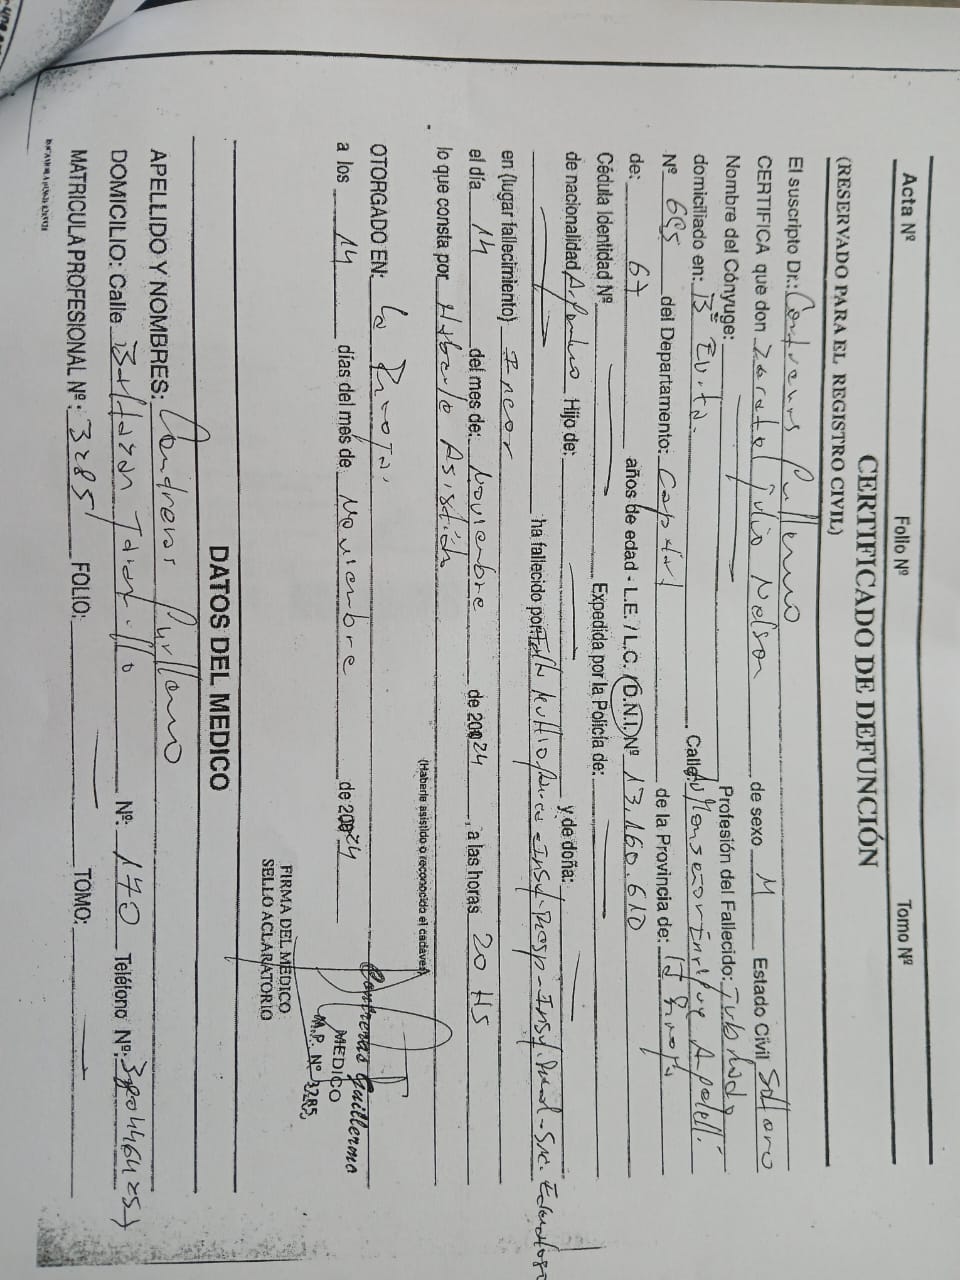 Acta Nº Folio Nº Tomo Nº
CERTIFICADO DE DEFUNCIÓN
(RESERVADO PARA EL REGISTRO CIVIL)
El suscripto Dr.: Contreras Guillermo
CERTIFICA que don Zarate Julio Nelson de sexo M Estado Civil Soltero
Nombre del Cónyuge: Profesión del Fallecido: Jubilado
domiciliado en: Bº Evita. Calle: Monseñor Enrique
Nº 665 del Departamento: Capital de la Provincia de: La Rioja
de: 67 años de edad - L.E. / L.C. / D.N.I. Nº 13.160.610
Cédula Identidad Nº Expedida por la Policía de:
de nacionalidad Argentino Hijo de: y de doña:
ha fallecido por: Falla Multiorganica - Insuf. Resp - Insuf. Renal -
en (lugar fallecimiento) Incor
el día 14 del mes de: Noviembre de 2024, a las horas 20 Hs
lo que consta por Haberlo Asistido
(Haberle asistido o reconocido el cadáver)
OTORGADO EN: La Rioja,
a los 14 días del mes de Noviembre de 2024
Contreras Guillermo
MEDICO
M.P. Nº 3285
FIRMA DEL MÉDICO
SELLO ACLARATORIO
DATOS DEL MEDICO
APELLIDO Y NOMBRES: Contreras Guillermo
DOMICILIO: Calle Baltazar Jaramillo Nº: 170 Teléfono Nº:
MATRICULA PROFESIONAL Nº: 3285 FOLIO: TOMO: